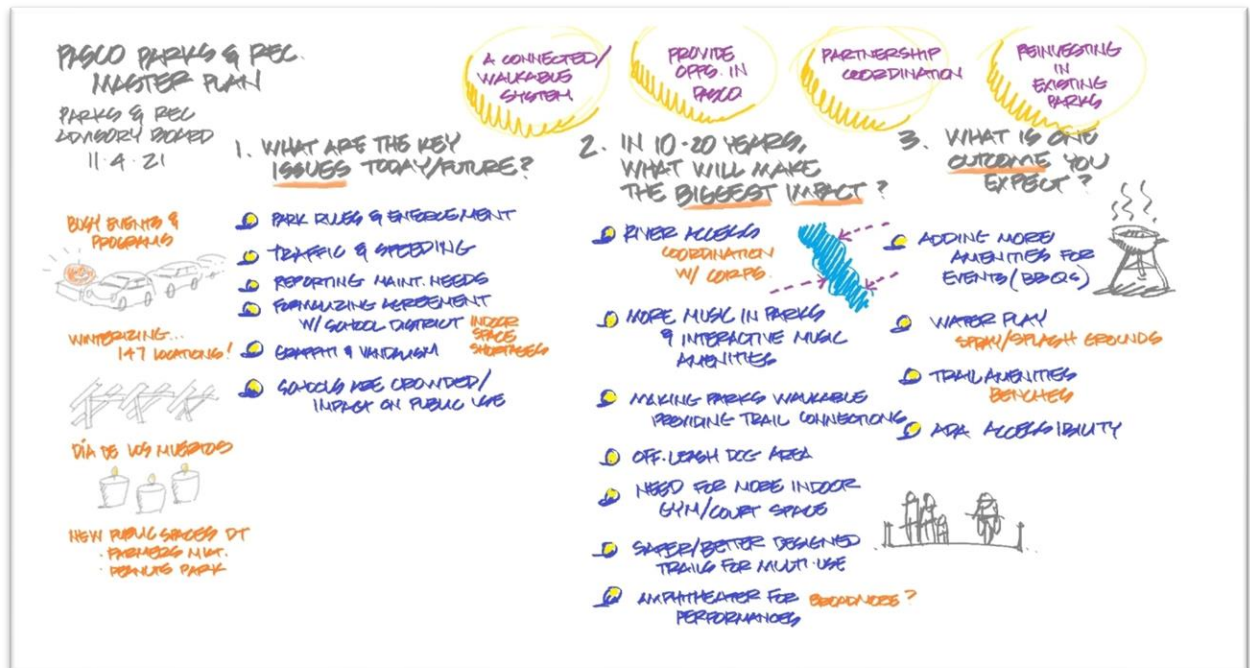 PASCO PARKS & REC.
MASTER PLAN
PARKS & REC
ADVISORY BOARD
11·4·21
A CONNECTED/
WALKABLE
SYSTEM
PROVIDE
OPPS. IN
PASCO
PARTNERSHIP
COORDINATION
REINVESTING
IN
EXISTING
PARKS
BUSY EVENTS &
PROGRAMS
WINTERIZING...
147 LOCATIONS!
DÍA DE LOS MUERTOS
NEW PUBLIC SPACES DT
· FARMERS MKT.
· PEANUTS PARK
1. WHAT ARE THE KEY
ISSUES TODAY/FUTURE?
PARK RULES & ENFORCEMENT
TRAFFIC & SPEEDING
REPORTING MAINT. NEEDS
FORMALIZING AGREEMENT
W/ SCHOOL DISTRICT
INDOOR
SPACE
SHORTAGES
GRAFFITI & VANDALISM
SCHOOLS ARE CROWDED/
IMPACT ON PUBLIC USE
2. IN 10-20 YEARS,
WHAT WILL MAKE
THE BIGGEST IMPACT?
RIVER ACCESS
COORDINATION
W/ CORPS.
MORE MUSIC IN PARKS
& INTERACTIVE MUSIC
AMENITIES
MAKING PARKS WALKABLE
PROVIDING TRAIL CONNECTIONS
OFF-LEASH DOG AREA
NEED FOR MORE INDOOR
GYM/COURT SPACE
SAFER/BETTER DESIGNED
TRAILS FOR MULTI-USE
AMPHITHEATER FOR BROADMORE?
PERFORMANCES
3. WHAT IS ONE
OUTCOME YOU
EXPECT?
ADDING MORE
AMENITIES FOR
EVENTS (BBQS)
WATER PLAY
SPRAY/SPLASH GROUNDS
TRAIL AMENITIES
BENCHES
ADA ACCESSIBILITY